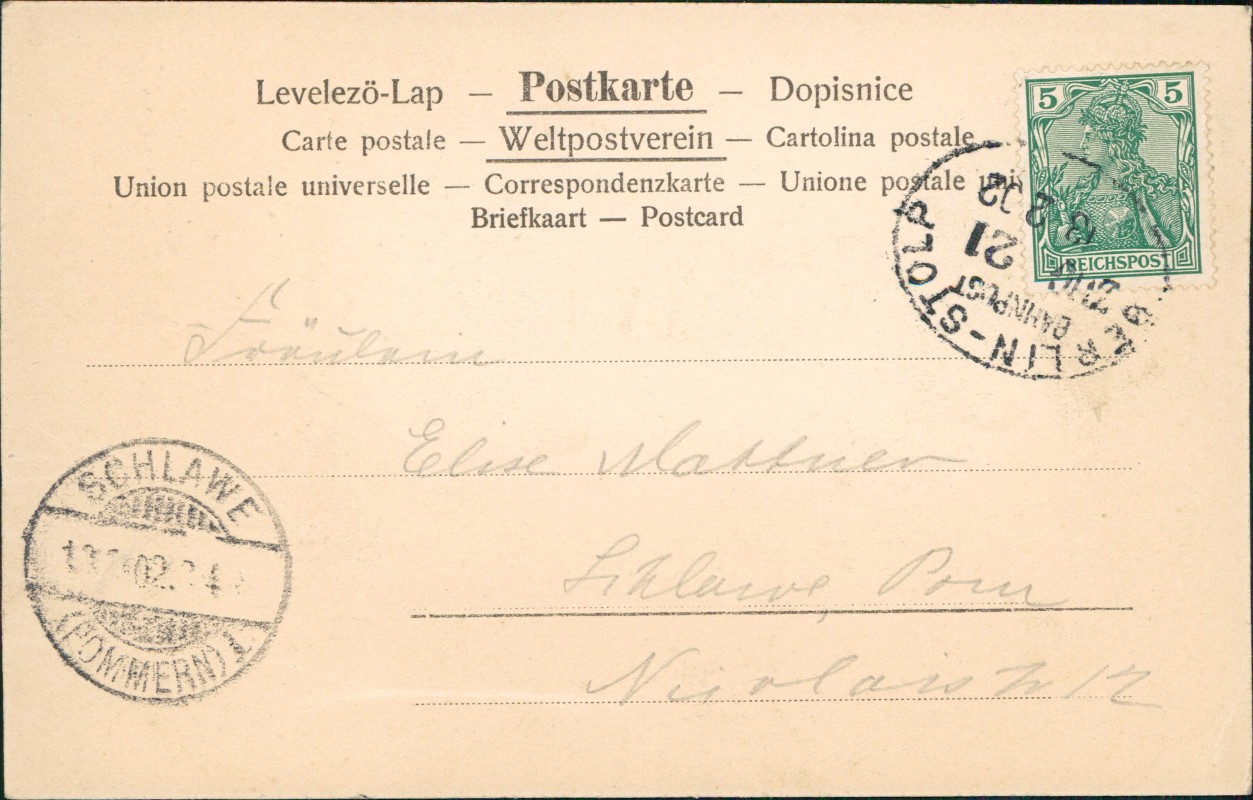 Levelezö-Lap — Postkarte — Dopisnice
Carte postale — Weltpostverein — Cartolina postale
Union postale universelle — Correspondenzkarte — Unione postale
Briefkaart — Postcard
5 5
REICHSPOST
BERLIN-STOLP
BAHNPOST
ZUG 21
13 2 02
Fräulein
Elise Mattner
Schlawe, Pom
SCHLAWE
(POMMERN) 1.